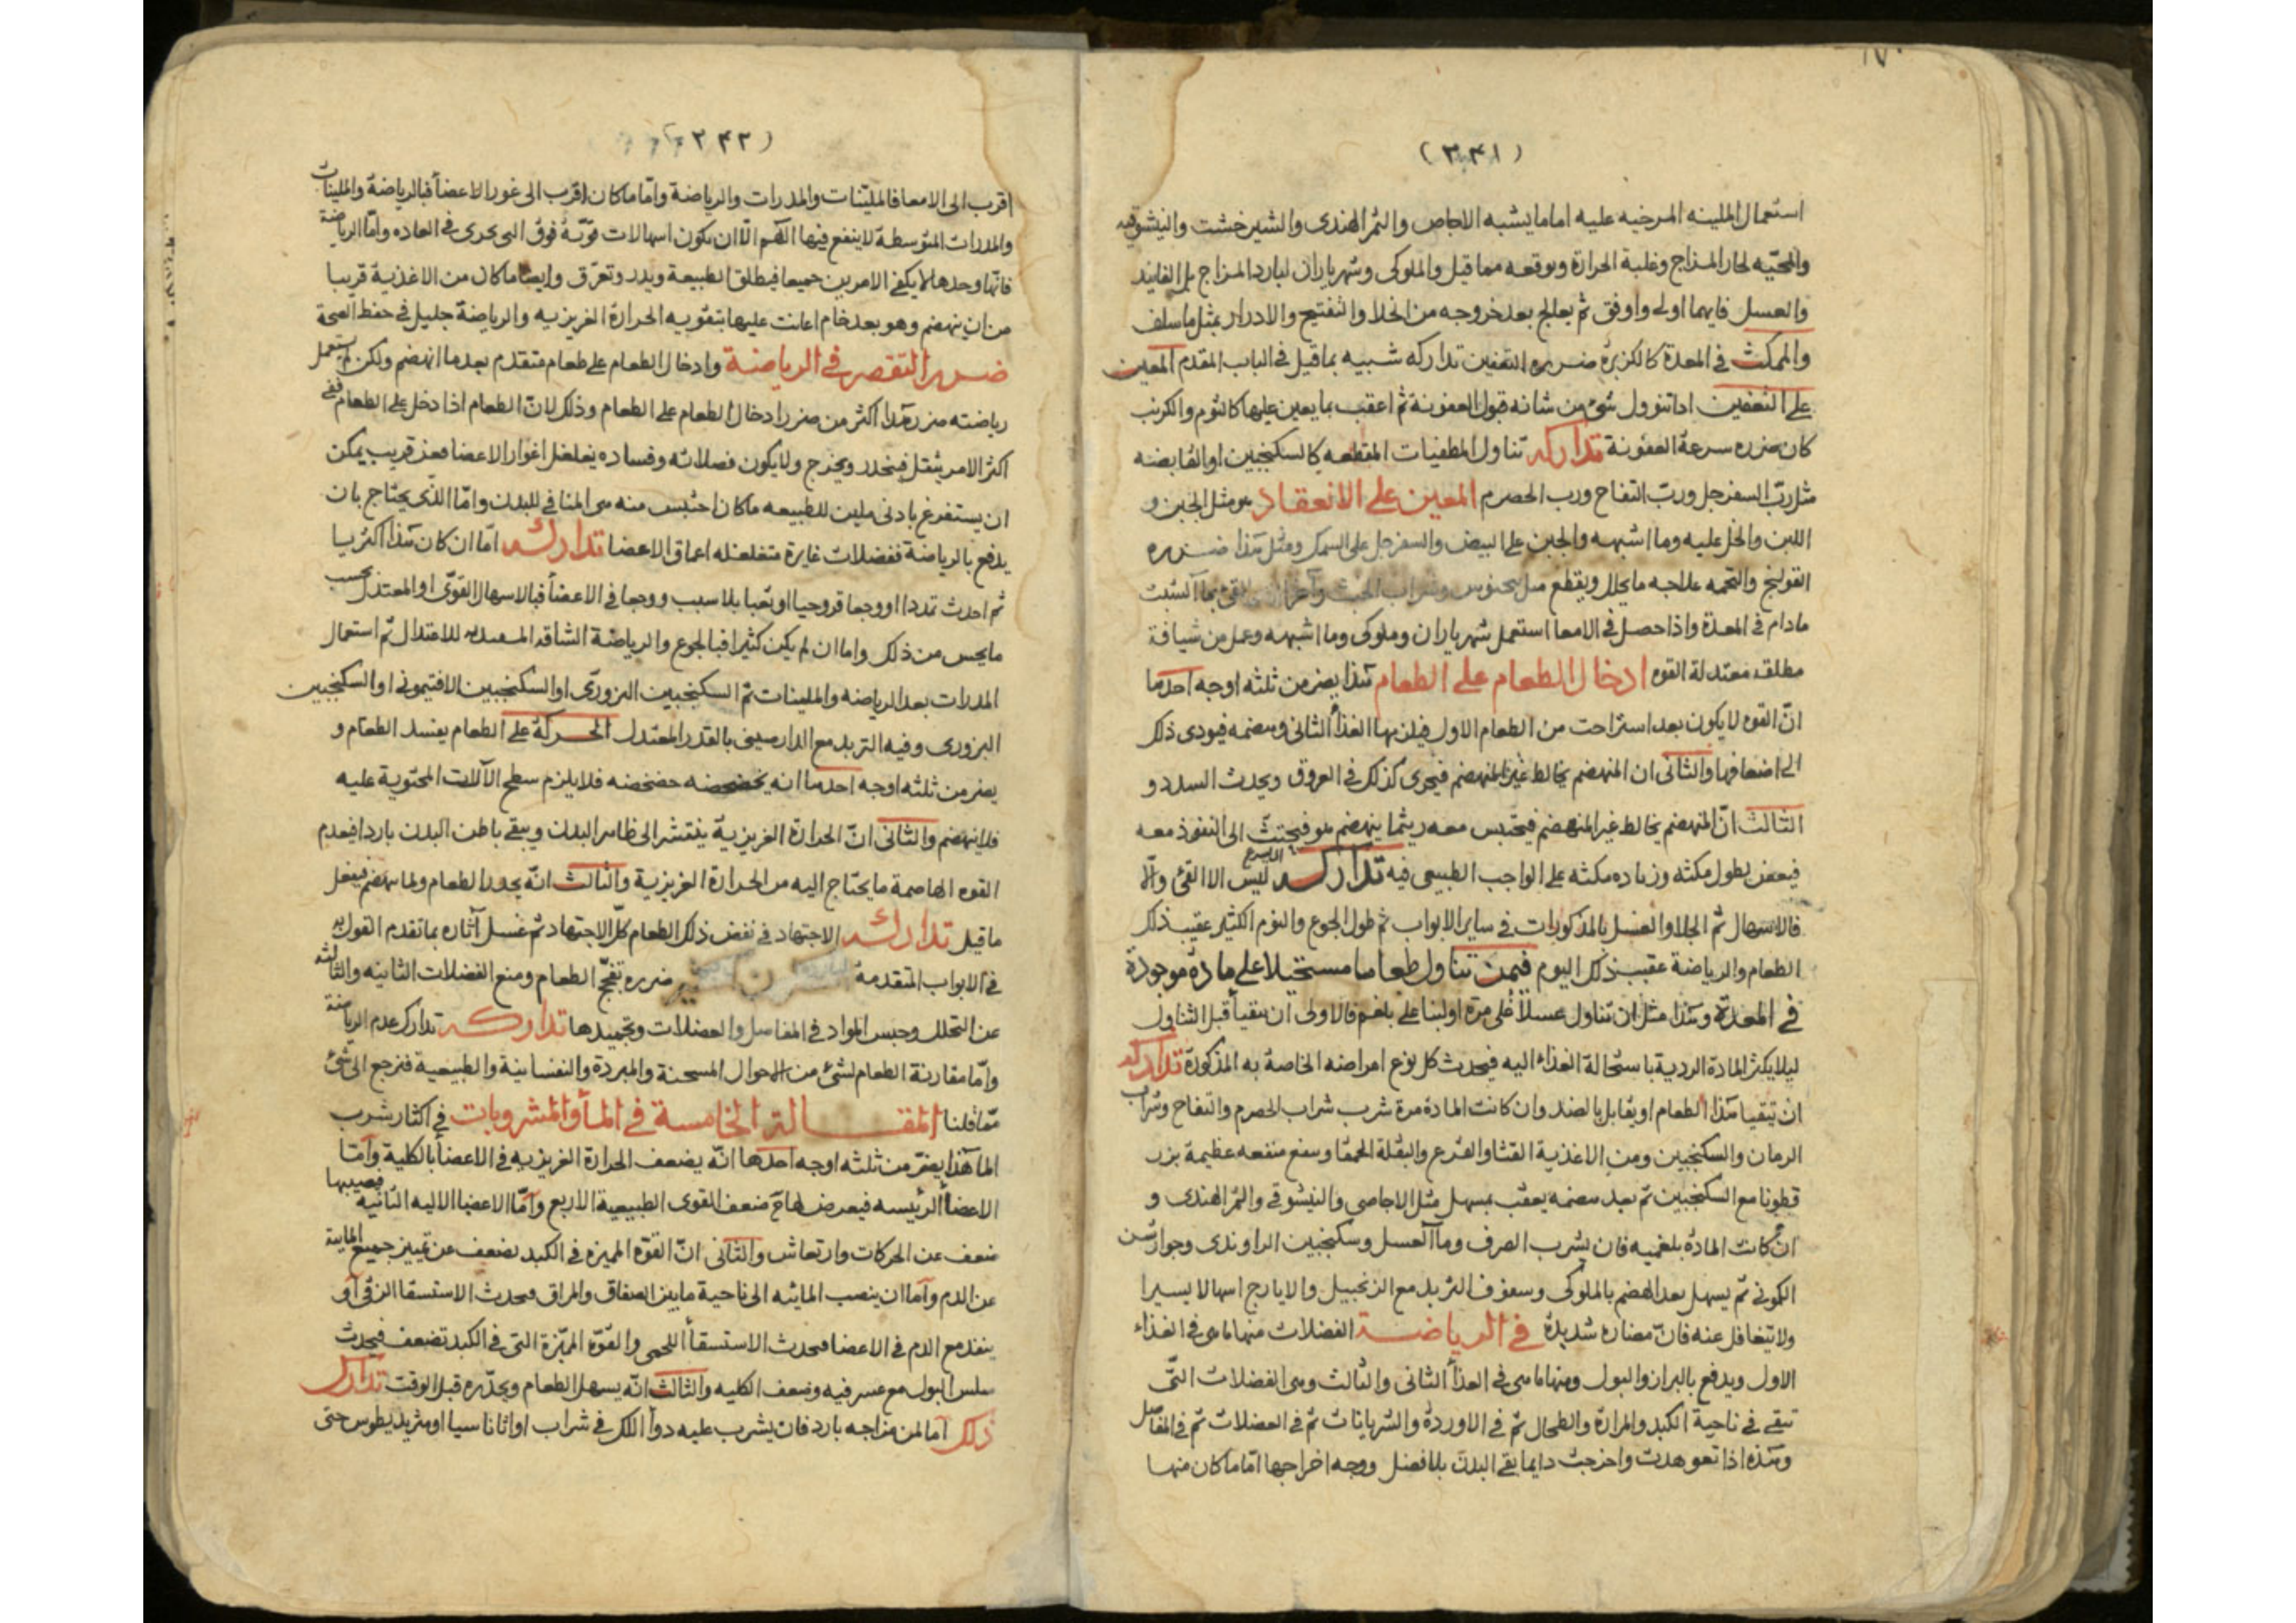 (٣٤١)
استعمال الملينه المرخيه عليه اما ما يشبه الاجاص والتمر الهندى والشيرخشت
لحار المزاج وغلبة الحرارة مما قيل والملوكى وشهرياران لبارد المزاج
والعسل فايهما اولى واوفق ثم يعالج بعد خروجه من الخلا والتفتيح والادرار بمثل ما سلف
والممكث فى المعدة كالكزبرة ضرره التعفين تداركه شبيه بما قيل فى الباب المقدم المعين
على التعفين اذا تنوول شئ من شانه قبول العفونة ثم اعقب بما يعين عليها كالثوم والكرنب
كان ضرره سرعة العفونة تداركه تناول المطفيات المقطعه كالسكنجبين او القابضه
مثل ربّ السفرجل وربّ التفاح ورب الحصرم المعين على الانعقاد هو مثل الجبن و
اللبن والخل عليه وما اشبهه والجبن على البيض والسفرجل على السمك ومثل هذا ضرره
القولنج والتخمه علاجه ما يحلل ويقطع
مادام فى المعدة واذا حصل فى الامعا استعمل شهرياران وملوكى وما اشبهه وعمل من شيافة
مطلقه معتدلة القوه ادخال الطعام على الطعام هذا يضر من ثلثه اوجه احدها
انّ القوه لا يكون بعد استراحت من الطعام الاول فيلزمها الغذأ الثانى وهضمه فيودى ذلك
الى اضعافها والثانى ان المنهضم يخالط غير المنهضم فيجرى كذلك فى العروق ويحدث السدد و
الثالث انّ المنهضم يخالط غير المنهضم فيحتبس معه ريثما ينهضم هو الى النفوذ معه
فيعفن بطول مكثه وزياده مكثه على الواجب الطبيعى فيه تدارك ليس الا القئ والّا
فالاسهال ثم الجلا والغسل بالمذكورات فى ساير الابواب ثم طول الجوع والنوم الكثير عقيب ذلك
الطعام والرياضة عقيب ذلك اليوم فيمن تناول طعاما مستحيلا على مادة موجودة
فى المعدة وهذا مثل ان تناول عسلا على مرة او لبنا على بلغم فالاولى ان يتقيأ قبل التناول
ليلا يكثر المادة الردية باستحالة الغذاء اليه فيحدث كل نوع امراضه الخاصة به المذكورة تداركه
ان يتقيا هذا الطعام او يقابل بالضد وان كانت المادة مرة شرب شراب الحصرم والتفاح وشراب
الرمان والسكنجبين ومن الاغذية القثا والقرع والبقلة الحمقا منفعه عظيمة بزر
قطونا مع السكنجبين ثم بعد هضمه يعقب بمسهل مثل الاجاصى والتمر الهندى و
ان كانت المادة بلغميه فان يشرب الصرف وماأ العسل وسكنجبين الراوندى وجوارشن
الكمونى ثم يسهل بعد الهضم بالملوكى وسفوف التربد مع الزنجبيل والايارج اسهالا يسيرا
ولا يتغافل عنه فانّ مضاره شديدة فى الرياضة الفضلات منها ما هى فى الغذاء
الاول ويدفع بالبراز والبول ومنها ما هى فى الغذأ الثانى والثالث وهى الفضلات التّى
تبقى فى ناحية الكبد والمرارة والطحال ثم فى الاوردة والشريانات ثم فى العضلات ثم فى المفاصل
وهذه اذا تعوهدت واخرجت دايما بقى البدن بلا فضل ووجه اخراجها امّا ما كان منها
اقرب الى الامعا فالمليّنات والمدرات والرياضة وامّا ما كان اقرب الى غور الاعضأ فبالرياضة والملينات
والمدرات المتوسطة لا ينفع فيها اللّهم الّا ان يكون اسهالات قويّة فوق التى يجرى فى العاده وامّا الرياضة
فانّها وحدها يكفى الامرين جميعا فيطلق الطبيعة ويدر وتعرّق وايضا ما كان من الاغذية قريبا
من ان ينهضم وهو بعد خام اعانت عليها بتقويه الحرارة الغريزيه والرياضة جليل فى حفظ الصحة
ضرر التقصير فى الرياضة وادخال الطعام على طعام متقدم بعد ما انهضم ولكن لم يستعمل
رياضته ضرر هذا اكثر من ضرر ادخال الطعام على الطعام وذلك لانّ الطعام اذا دخل على الطعام ففى
اكثر الامر يثقل فينحدر ويخرج ولا يكون فضلاته وفساده اغوار الاعضا فعن قريب يمكن
ان يستفرغ بادنى ملين للطبيعه ما كان احتبس منه هى المنافى للبدن وامّا الذّى يحتاج بان
يدفع بالرياضة ففضلات غايرة متغلغله اعماق الاعضا تداركه امّا ان كان هذا اكثريا
ثم احدث تمددا او وجعا قروحيا او تعبا بلا سبب ووجعا فى الاعضأ فبالاسهال القوّى او المعتدل بحسب
ما يحس من ذلك واما ان لم يكن كثيرا فبالجوع والرياضة الشاقه للاعتدال ثم استعمال
المدرات بعد الرياضه والملينات ثم السكنجبين البزورّى او السكنجبين الافتيمونى او السكنجبين
البزورى وفيه التربد مع الدارصينى بالقدر المعتدل الحركة على الطعام يفسد الطعام و
يضر من ثلثه اوجه احدها انه يخضخضه خضخضه فلا يلزم سطح الآلات المحتوية عليه
فلا ينهضم والثانى انّ الحرارة الغريزيّة ينتشر الى ظاهر البدن ويبقى باطن البدن باردا فيعدم
القوه الهاضمة ما يحتاج اليه من الحرارة الغريزية والثالث انّه يحدر الطعام ولما ينهضم فيفعل
ما قيل تداركه الاجتهاد فى نفض ذلك الطعام كلّ الاجتهاد ثم غسل آثاره بما تقدم القول به
فى الابواب المتقدمة ضرره تفجّج الطعام ومنع الفضلات الثانيه والثالثه
عن التحلل وحبس المواد فى المفاصل والعضلات وتجميدها تداركه تدارك عدم الرياضة
وامّا مقارنة الطعام لشئ من الاحوال المسخنة والمبردة والنفسانية والطبيعية فنرجع الى شئ
ممّا قلنا المقالة الخامسة فى المأ والمشروبات فى اكثار شرب
الما هذا يضرّ من ثلثه اوجه احدها انّه يضعف الحرارة الغريزيه فى الاعضأ بالكلية وامّا
الاعضأ الرئيسه فيعرض لها ضعف القوى الطبيعية الاربع وامّا الاعضا الاليه الثانيه فيصيبها
ضعف عن الحركات وارتعاش والثانى انّ القوّه المميزه فى الكبد تضعف عن تمييز جميع المائية
عن الدم وامّا ان ينصب المائيه الى ناحية ما بين الصفاق والمراق فيحدث الاستسقا الزقى او
ينفذ مع الدم فى الاعضا فيحدث الاستسقأ اللحمى والقوّة المميّزة التى فى الكبد تضعف فيحدث
سلس البول مع عسر فيه وضعف الكليه والثالث انّه يسهل الطعام ويحدّره قبل الوقت تدارك
ذلك اما لمن مزاجه بارد فان يشرب عليه دوأ اللك فى شراب او اثاناسيا او مثريديطوس حتى